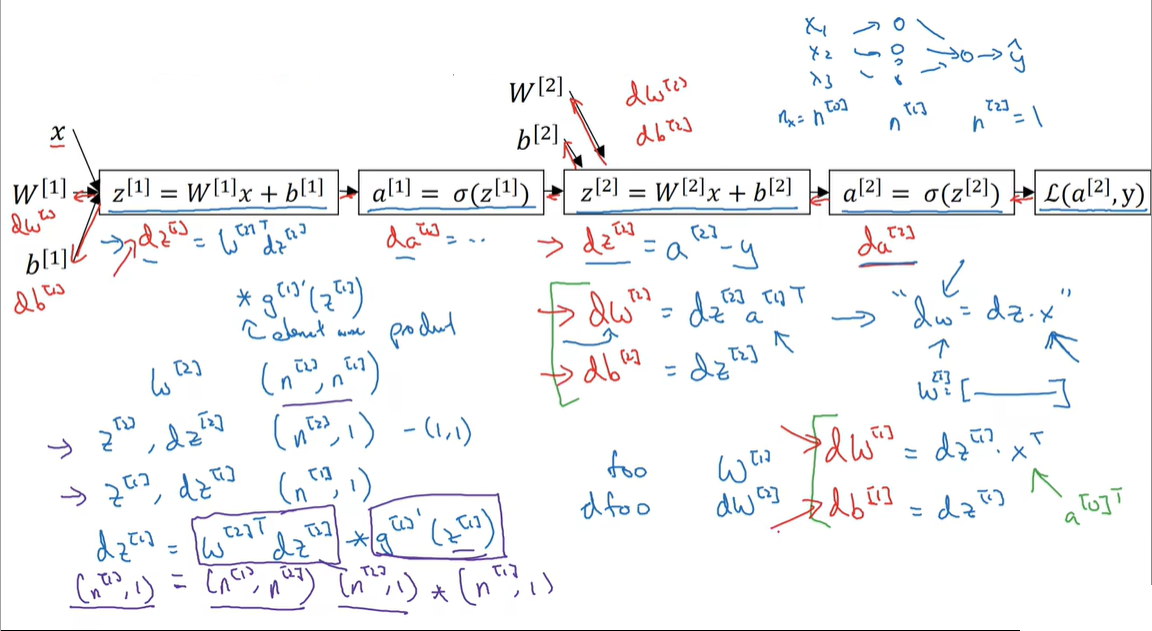 x₁ → o
x₂ — o → o → ŷ
x₃
nₓ = n^[0] n^[1] n^[2] = 1
W^[2] dw^[2]
b^[2] db^[2]
x
W^[1] z^[1] = W^[1]x + b^[1] a^[1] = σ(z^[1]) z^[2] = W^[2]x + b^[2] a^[2] = σ(z^[2]) ℒ(a^[2], y)
dw^[1] → dz^[1] = W^[2]T dz^[2] da^[1] = .. → dz^[2] = a^[2] - y da^[2]
b^[1]
db^[1]
* g^[1]'(z^[1])
element wise product
→ dw^[2] = dz^[2] a^[1]T → "dw = dz · x"
→ db^[2] = dz^[2]
w^[2] (n^[2], n^[1])
→ z^[2], dz^[2] (n^[2], 1) - (1,1)
→ z^[1], dz^[1] (n^[1], 1)
foo W^[1] dw^[1] = dz^[1] · x^T
dfoo dw^[2] db^[1] = dz^[1] a^[0]T
dz^[1] = W^[2]T dz^[2] * g^[1]'(z^[1])
(n^[1], 1) = (n^[1], n^[2]) (n^[2], 1) * (n^[1], 1)